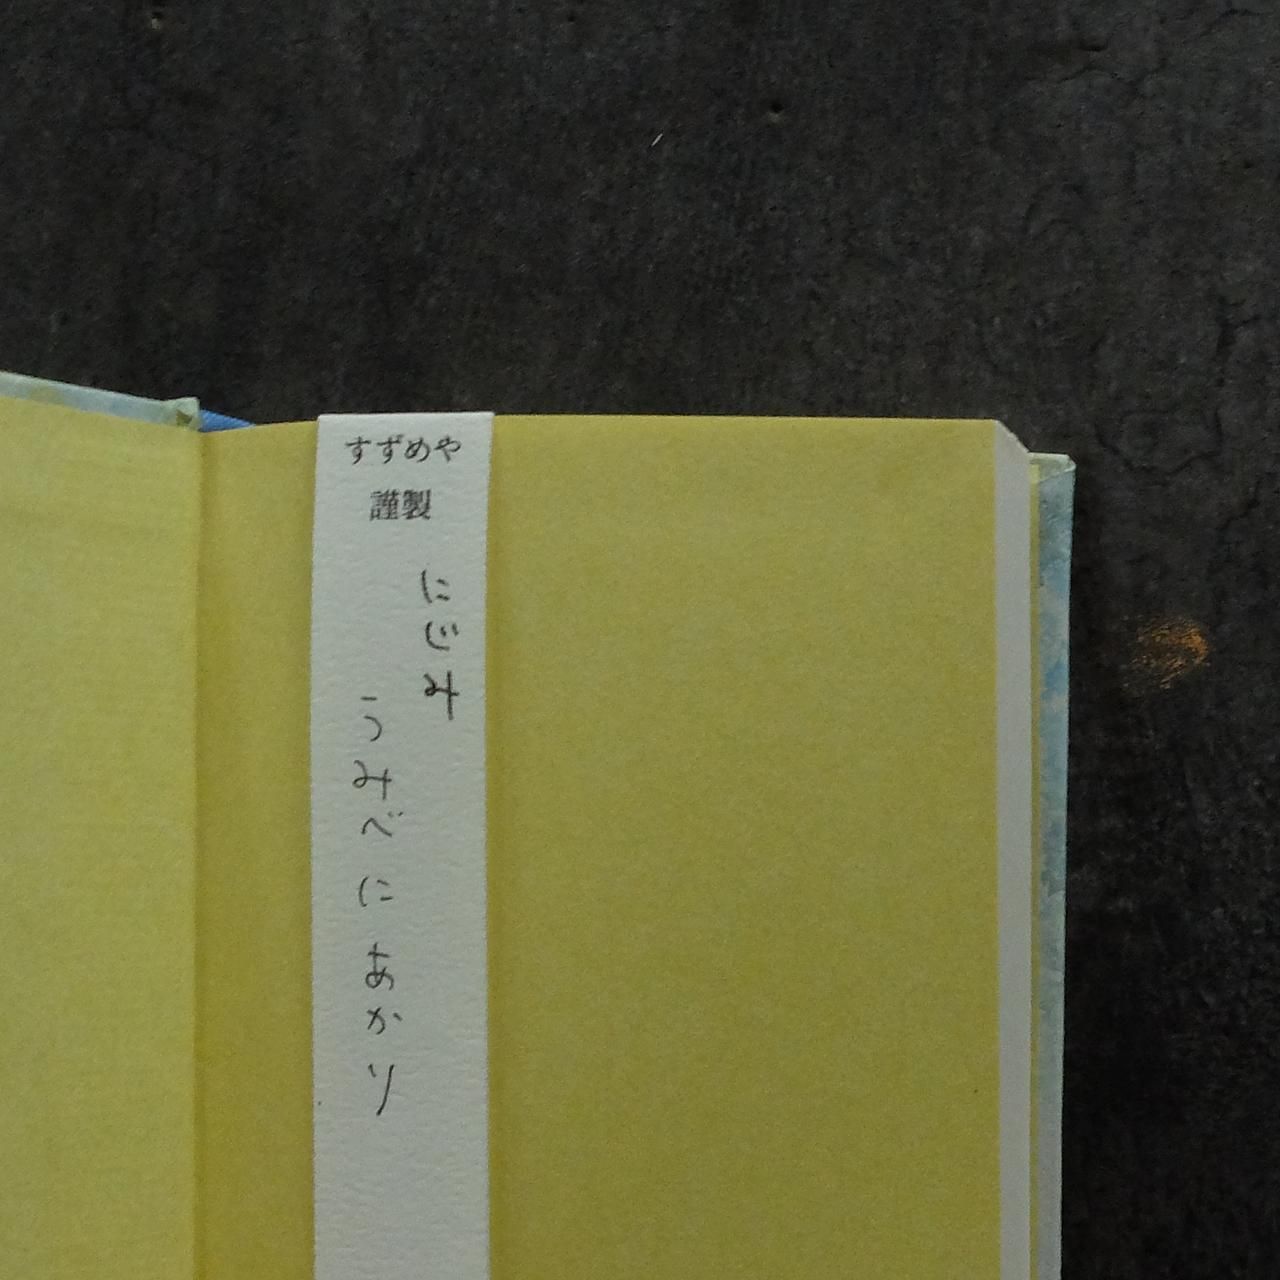 すずめや
謹製
にじみ
うみべ に あかり